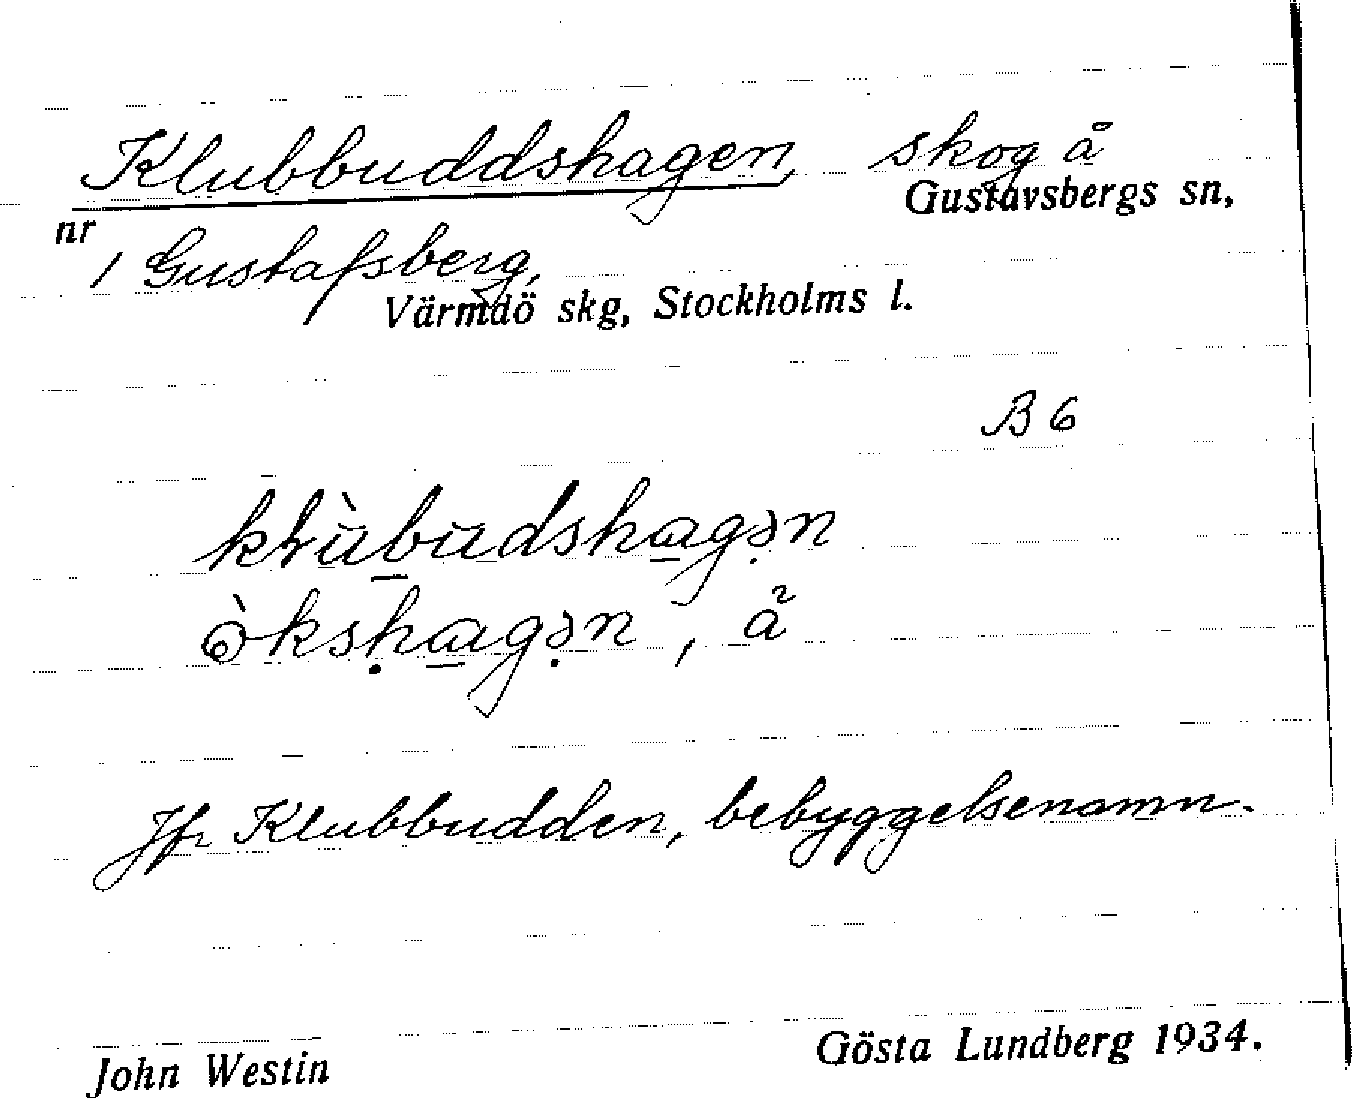 Klubbuddshagen, skog å
Gustavsbergs sn,
nr
1 Gustafsberg,
Värmdö skg, Stockholms l.
B 6
Jfr Klubbudden, bebyggelsenamn.
John Westin
Gösta Lundberg 1934.